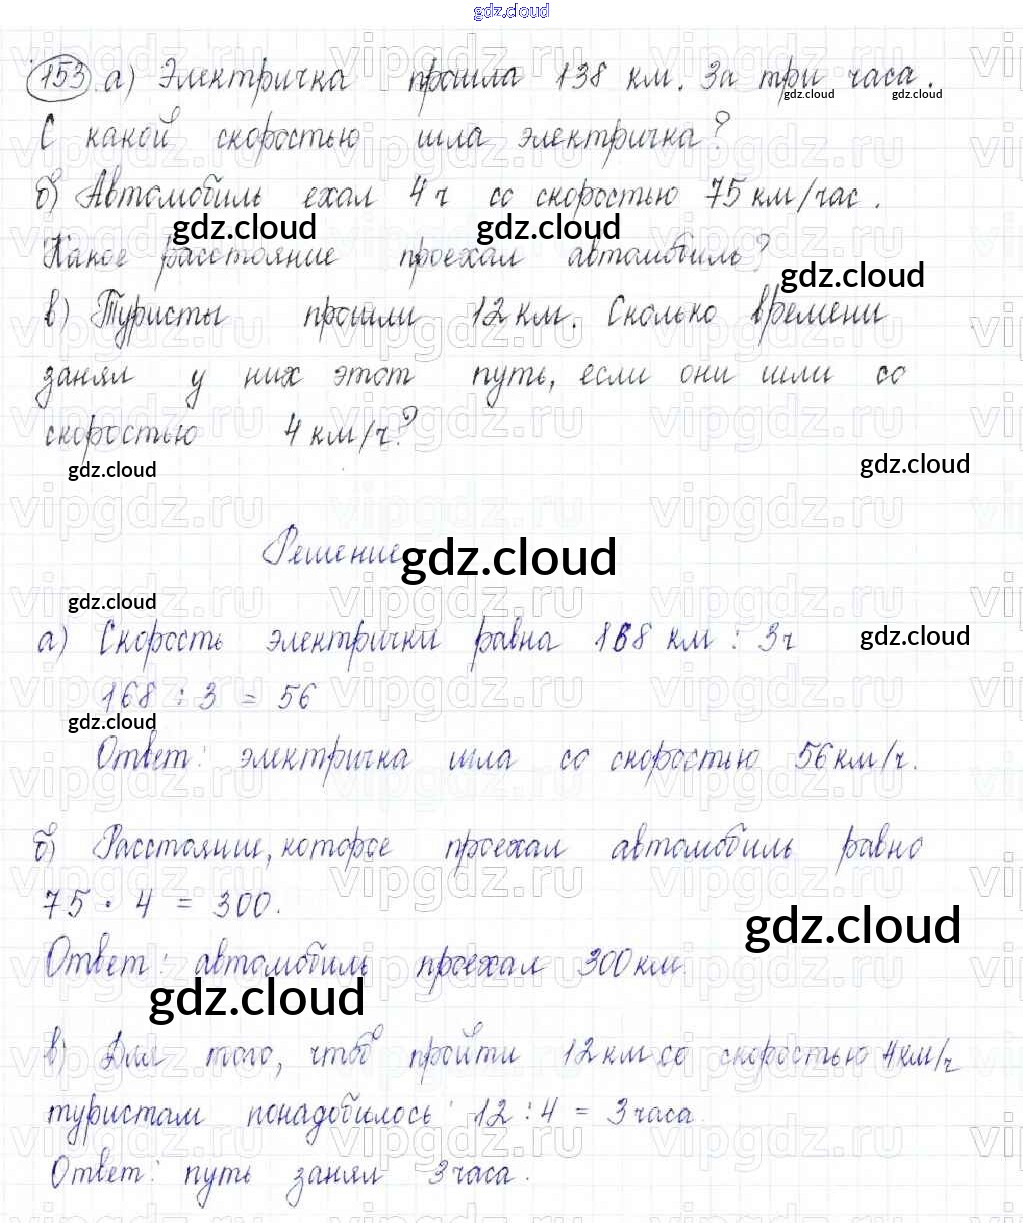 gdz.cloud
153 а) Электричка прошла 138 км. За три часа.
gdz.cloud gdz.cloud
С какой скоростью шла электричка?
б) Автомобиль ехал 4ч со скоростью 75 км/час.
gdz.cloud gdz.cloud
Какое расстояние проехал автомобиль?
gdz.cloud
в) Туристы прошли 12 км. Сколько времени
занял у них этот путь, если они шли со
скоростью 4 км/ч?
gdz.cloud gdz.cloud
Решение
gdz.cloud
gdz.cloud
а) Скорость электрички равна 168 км : 3ч
gdz.cloud
168 : 3 = 56
gdz.cloud
Ответ: электричка шла со скоростью 56 км/ч.
б) Расстояние, которое проехал автомобиль равно
75 · 4 = 300.
gdz.cloud
Ответ: автомобиль проехал 300 км.
gdz.cloud
в) Для того, чтоб пройти 12 км со скоростью 4 км/ч
туристам понадобилось 12 : 4 = 3 часа.
Ответ: путь занял 3 часа.